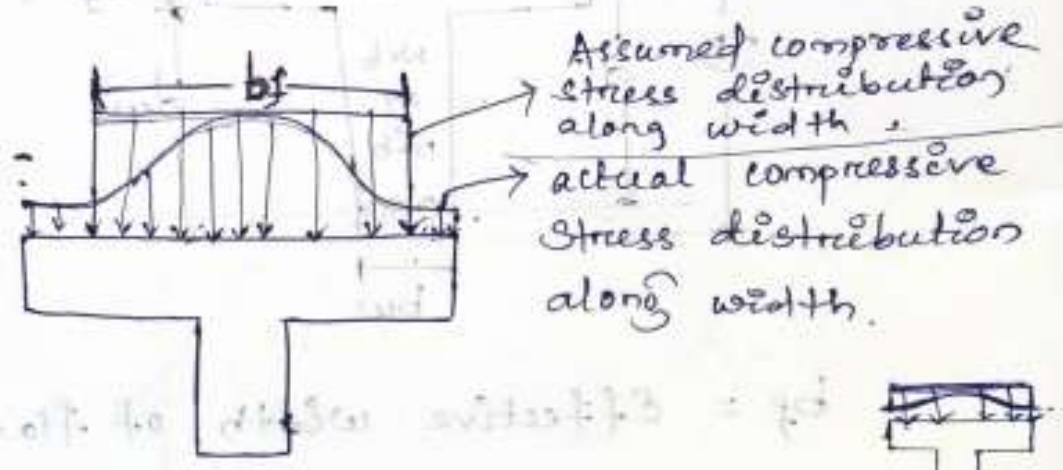 bf
Assumed compressive
stress distribution
along width.
actual compressive
Stress distribution
along width.
bf = Effective width of